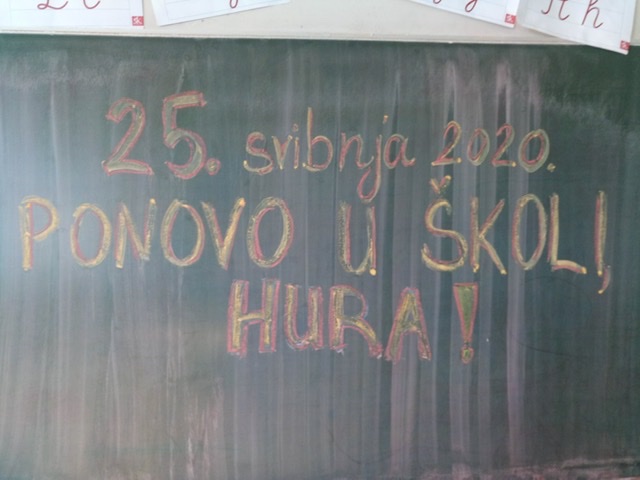 25. svibnja 2020.
PONOVO U ŠKOLI,
HURA!